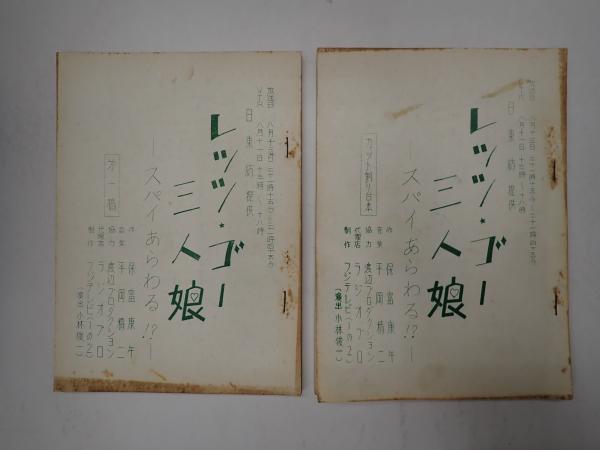 放送 八月十三日 二十一時十五分〜二十一時四十五分
VTR 八月十一日 十三時〜十八時
日東紡提供
レッツ・ゴー
三人娘
―スパイあらわる!?―
カット割り台本
作 保富康午
音楽 平岡精二
協力 渡辺プロダクション
代理店 ラジオプロ
制作 フジテレビ
(演出 小林俊一)
放送 八月十三日 二十一時十五分〜二十一時四十五分
VTR 八月十一日 十三時〜十八時
日東紡提供
レッツ・ゴー
三人娘
―スパイあらわる!?―
第一稿
作 保富康午
音楽 平岡精二
協力 渡辺プロダクション
代理店 ラジオプロ
制作 フジテレビ
(演出 小林俊一)